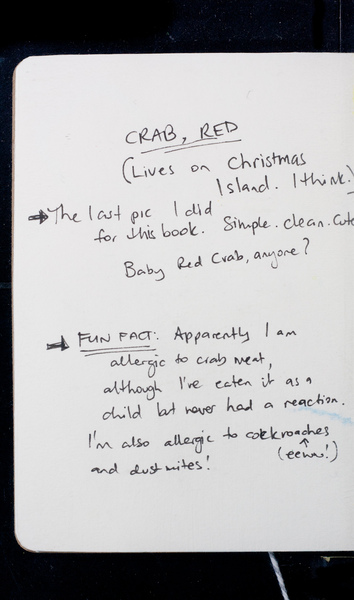 CRAB, RED
(Lives on Christmas
Island. I think.)
→ The last pic I did
for this book. Simple. clean. Cute
Baby Red Crab, anyone?
→ FUN FACT: Apparently I am
allergic to crab meat,
although I've eaten it as a
child but never had a reaction.
I'm also allergic to cockroaches
(eeww!)
and dust mites!